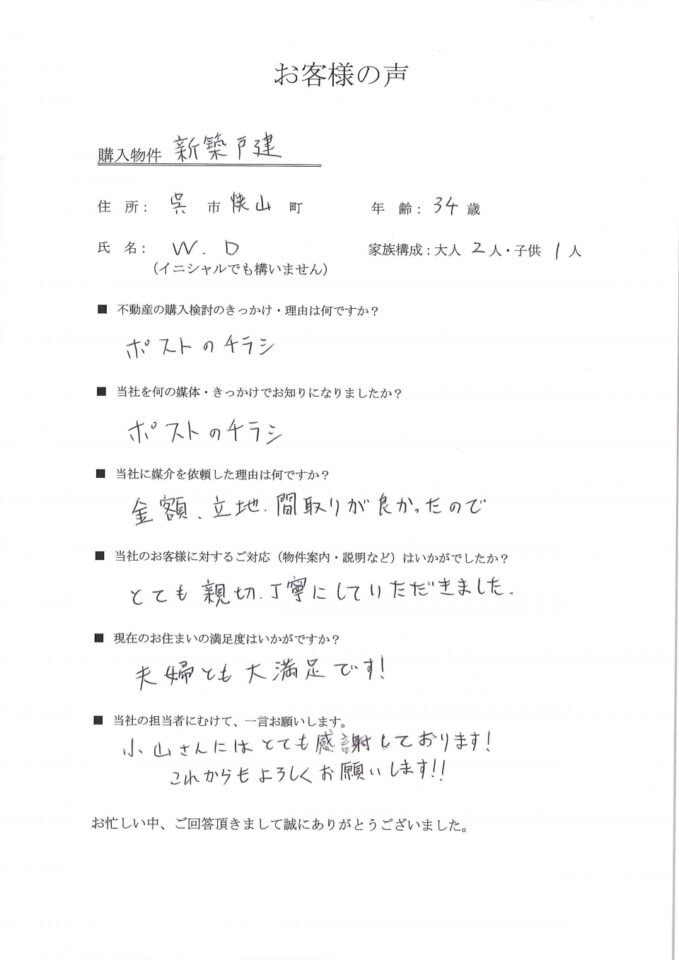 お客様の声
購入物件 新築戸建
住 所： 呉 市 焼山 町 年 齢： 34 歳
氏 名： W. D 家族構成：大人 2 人・子供 1 人
（イニシャルでも構いません）
■ 不動産の購入検討のきっかけ・理由は何ですか？
ポストのチラシ
■ 当社を何の媒体・きっかけでお知りになりましたか？
ポストのチラシ
■ 当社に媒介を依頼した理由は何ですか？
金額、立地、間取りが良かったので
■ 当社のお客様に対するご対応（物件案内・説明など）はいかがでしたか？
とても親切、丁寧にしていただきました.
■ 現在のお住まいの満足度はいかがですか？
夫婦とも大満足です!
■ 当社の担当者にむけて、一言お願いします。
小山さんにはとても感謝しております!
これからもよろしくお願いします!!
お忙しい中、ご回答頂きまして誠にありがとうございました。